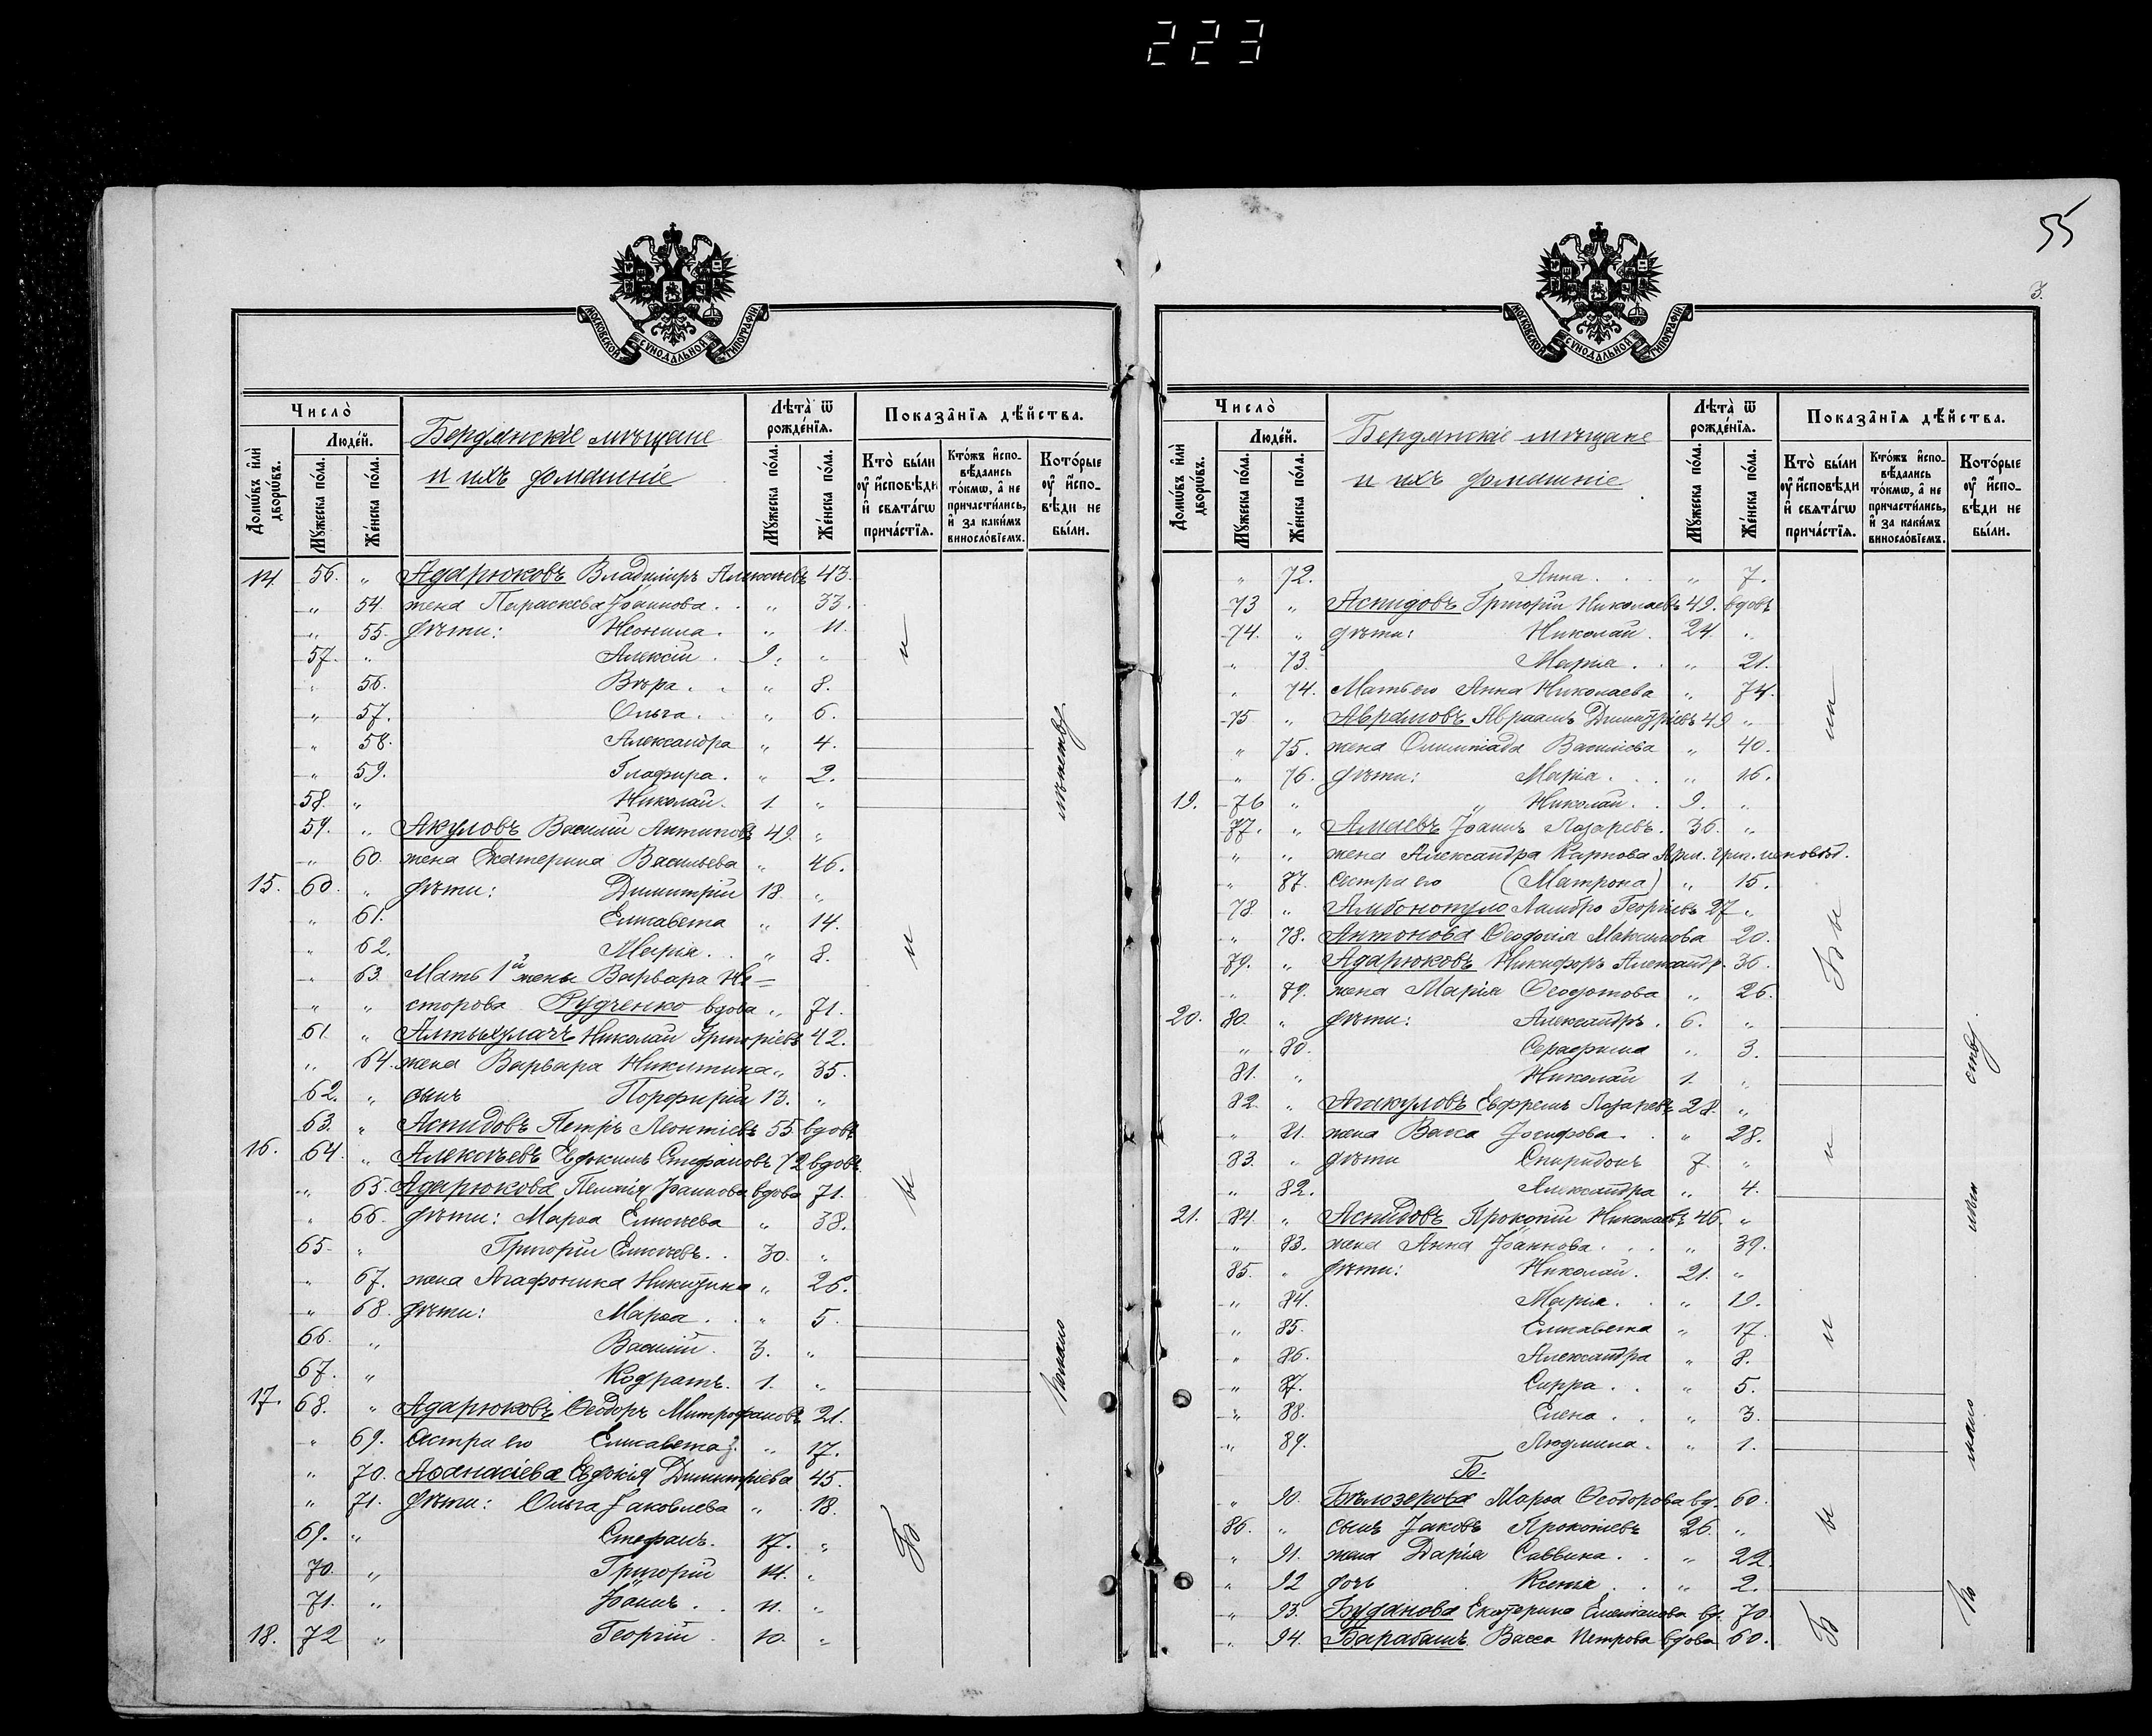 223
55
3.
МОСКОВСКОЙ СѴНОДАЛЬНОЙ ТИПОГРАФІИ
Число̀
Людéй.
Домѡ́въ и҆лѝ дворѡ́въ.
Мꙋ́жеска по́ла.
Же́нска по́ла.
Бердянскіе мѣщане
и ихъ домашніе
Лѣ́та ѿ рожде́нїѧ.
Мꙋ́жеска по́ла.
Же́нска по́ла.
Показа̑нїѧ дѣ́йства.
Кто̀ бы́ли ᲂу҆ и҆́сповѣди и҆ свѧта́гѡ прича́стїѧ.
Кто́жъ и҆спо-вѣ́дались то́кмѡ, а҆ не причасти́лись, и҆ за каки́мъ виносло́вїемъ.
Кото́рые ᲂу҆ и҆́спо-вѣди не бы́ли.
14. 56. „ Адарюковъ Владимиръ Алексѣевъ 43.
„ 54. жена Параскева Іоаннова . . „ 33.
„ 55. дѣти: Неонила . „ 11.
57. „ Алексій . 9. „
„ 56. Вѣра . . „ 8.
„ 57. Ольга . „ 6.
„ 58. Александра „ 4.
„ 59. Глафира . „ 2.
58. „ Николай . 1. „
59. „ Акуловъ Василій Антиповъ 49. „
„ 60. жена Екатерина Васильева „ 46.
15. 60. „ дѣти: Димитрій 18 „
„ 61. Елисавета „ 14.
„ 62. Марія . . „ 8.
„ 63. Мать 1й жены Варвара Не=
„ „ сторова Рудченко вдова „ 71.
61. „ Алтыхулачъ Николай Григоріевъ 42.
„ 64. жена Варвара Никитина „ 35.
62. „ сынъ Порфирій 13. „
63. „ Аспидовъ Петръ Леонтіевъ 55 вдовъ
16. 64. „ Алексѣевъ Евдокимъ Стефановъ 72 вдовъ
„ 65. Адарюкова Пелагія Іоаннова вдова 71.
„ 66. дѣти: Марѳа Елисѣева „ 38.
65. „ Григорій Елисѣевъ . . 30. „
„ 67. жена Агафоника Никитина „ 26.
„ 68. дѣти: Марѳа . . „ 5.
66. „ Василій . 3. „
67. „ Кодратъ . 1. „
17. 68. „ Адарюковъ Ѳеодоръ Митрофановъ 21.
„ 69. Сестра его Елисавета „ 17.
„ 70. Аѳанасіева Евдокія Димитріева 45.
„ 71. дѣти: Ольга Іаковлева „ 18.
69. „ Стефанъ . 17. „
70. „ Григорій 14. „
71. „ Іоаннъ . . 11. „
18. 72 „ Георгій . 10. „
Б ы и и
по мало лѣтству
МОСКОВСКОЙ СѴНОДАЛЬНОЙ ТИПОГРАФІИ
Число̀
Людéй.
Домѡ́въ и҆лѝ дворѡ́въ.
Мꙋ́жеска по́ла.
Же́нска по́ла.
Бердянскіе мѣщане
и ихъ домашніе
Лѣ́та ѿ рожде́нїѧ.
Мꙋ́жеска по́ла.
Же́нска по́ла.
Показа̑нїѧ дѣ́йства.
Кто̀ бы́ли ᲂу҆ и҆́сповѣди и҆ свѧта́гѡ прича́стїѧ.
Кто́жъ и҆спо-вѣ́дались то́кмѡ, а҆ не причасти́лись, и҆ за каки́мъ виносло́вїемъ.
Кото́рые ᲂу҆ и҆́спо-вѣди не бы́ли.
„ 72. Анна . . . „ 7.
73 „ Аспидовъ Григорій Николаевъ 49. вдовъ
74. „ дѣти: Николай . 24. „
„ 73. Марія . . „ 21.
„ 74. Мать его Анна Николаева „ 74.
75 „ Аврамовъ Авраамъ Димитріевъ 49 „
„ 75. жена Олимпіада Василіева „ 40.
„ 76. дѣти: Марія . . . „ 16.
19. 76 „ „ Николай . . 9. „
77. „ Амаевъ Іоаннъ Лазаревъ . 36. „
„ „ жена Александра Карпова Арм. Григ. исповѣд.
„ 77. Сестра его (Матрона) „ 15.
78 „ Амбонопуло Ламбро Георгіевъ 27 „
„ 78. Антонова Ѳеодосія Максимова 20.
79. „ Адарюковъ Никифоръ Александр. 36.
„ 79. жена Марія Ѳеодотова „ 26.
20. 80. „ дѣти: Александръ . 6. „
„ 80. Серафима „ 3.
81. „ Николай 1. „
82 „ Евфремъ Лазаревъ 28. „
„ 81. жена Васса Іосифова . . „ 28.
83. „ дѣти Спиридонъ 7 „
„ 82. Александра „ 4.
21. 84. „ Аспидовъ Прокопій Николаевъ 46. „
„ 83. жена Анна Іоаннова . . . „ 39.
85. „ дѣти: Николай . 21. „
„ 84. Марія . . „ 19.
„ 85. Елисавета „ 17.
„ 86. Александра „ 8.
„ 87. Сирра . . „ 5.
„ 88. Елена . . „ 3.
„ 89. Людмила . „ 1.
Б.
„ 90. Бѣлозерова Марѳа Ѳеодорова вд. 60.
86. „ сынъ Іаковъ Прокопіевъ 26. „
„ 91. жена Дарія Саввина . . „ 22.
„ 92 дочь Ксенія . . „ 2.
„ 93. Буданова Екатерина Емеліанова вд. 70.
„ 94. Барабашъ Васса Петрова вдова 60.
Б ы и и Бы ли
по мало лѣт ству